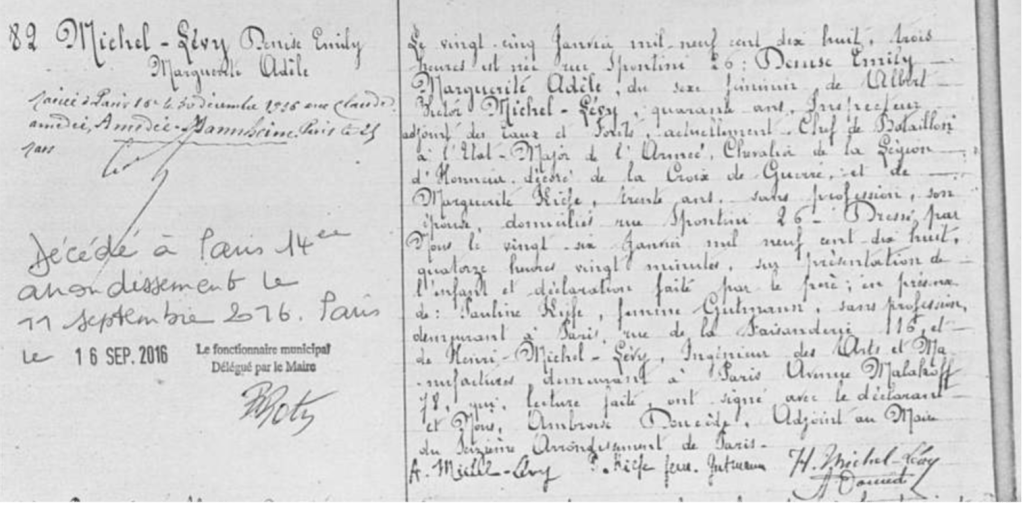 82 Michel-Lévy Denise Emily
Marguerite Adèle
Mariée à Paris 16e le 30 décembre 1936 avec Claude
Amédée, Mannheim, Paris le 
Mars
Décédé à Paris 14ème
arrondissement le
11 septembre 2016. Paris
le 16 SEP. 2016
Le fonctionnaire municipal
Délégué par le Maire
Le vingt cinq Janvier mil neuf cent dix huit, trois
heures est née rue Spontini 26: Denise Emily
Marguerite Adèle, du sexe féminin de Albert
Victor Michel-Lévy, quarante ans, Inspecteur
adjoint des Eaux et Forêts, actuellement Chef de Bataillon
à l'Etat-Major de l'Armée, Chevalier de la Légion
d'Honneur, décoré de la Croix de Guerre, et de
Marguerite Kiefe, trente ans, sans profession, son
épouse, domiciliés rue Spontini 26 - Dressé par
Nous le vingt six Janvier mil neuf cent dix huit,
quatorze heures vingt minutes, sur présentation de
l'enfant et déclaration faite par le père; en présence
de: Pauline Kiefe, femme Gutmann, sans profession,
demeurant à Paris, rue de la Faisanderie 116, et
de Henri Michel-Lévy, Ingénieur des Arts et Ma
nufactures demeurant à Paris Avenue Malakoff
78, qui, lecture faite, ont signé avec le déclarant
et Nous, Ambroise , Adjoint au Maire
du Seizième Arrondissement de Paris.
A. Michel-Lévy P. Kiefe fem. Gutmann H. Michel-Lévy